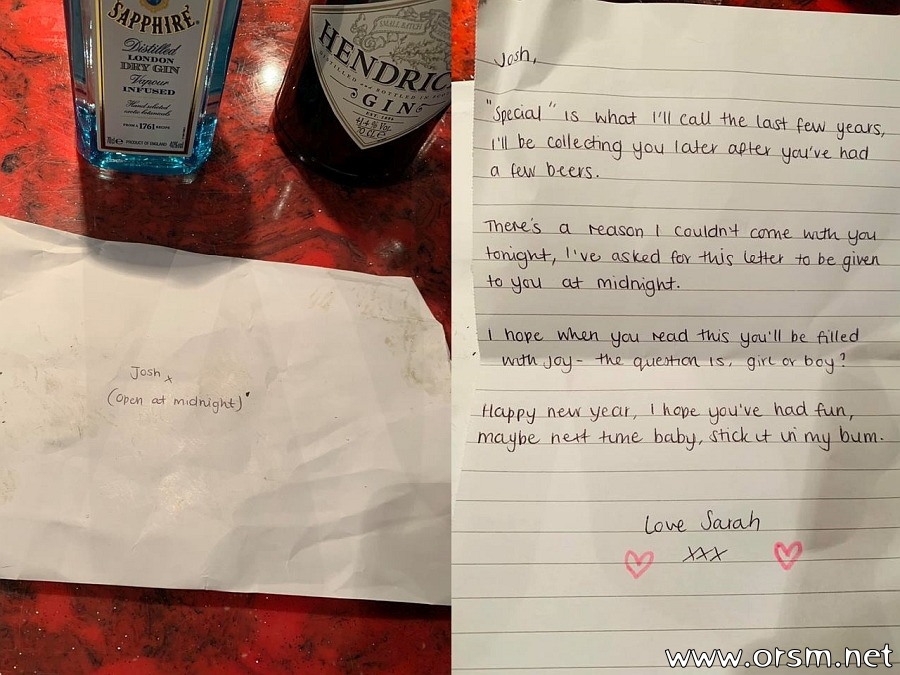 SAPPHIRE
Distilled
LONDON
DRY GIN
Vapour
INFUSED
Hand selected
exotic botanicals
FROM A 1761 RECIPE
PRODUCT OF ENGLAND
40%vol
SMALL BATCH
HENDRIC
DISTILLED AND BOTTLED IN SCO
GIN
Josh x
(open at midnight)
Josh,
"Special" is what I'll call the last few years,
I'll be collecting you later after you've had
a few beers.
There's a reason I couldn't come with you
tonight, I've asked for this letter to be given
to you at midnight.
I hope when you read this you'll be filled
with joy - the question is, girl or boy?
Happy new year, I hope you've had fun,
maybe next time baby, stick it in my bum.
Love Sarah
xxx
www.orsm.net